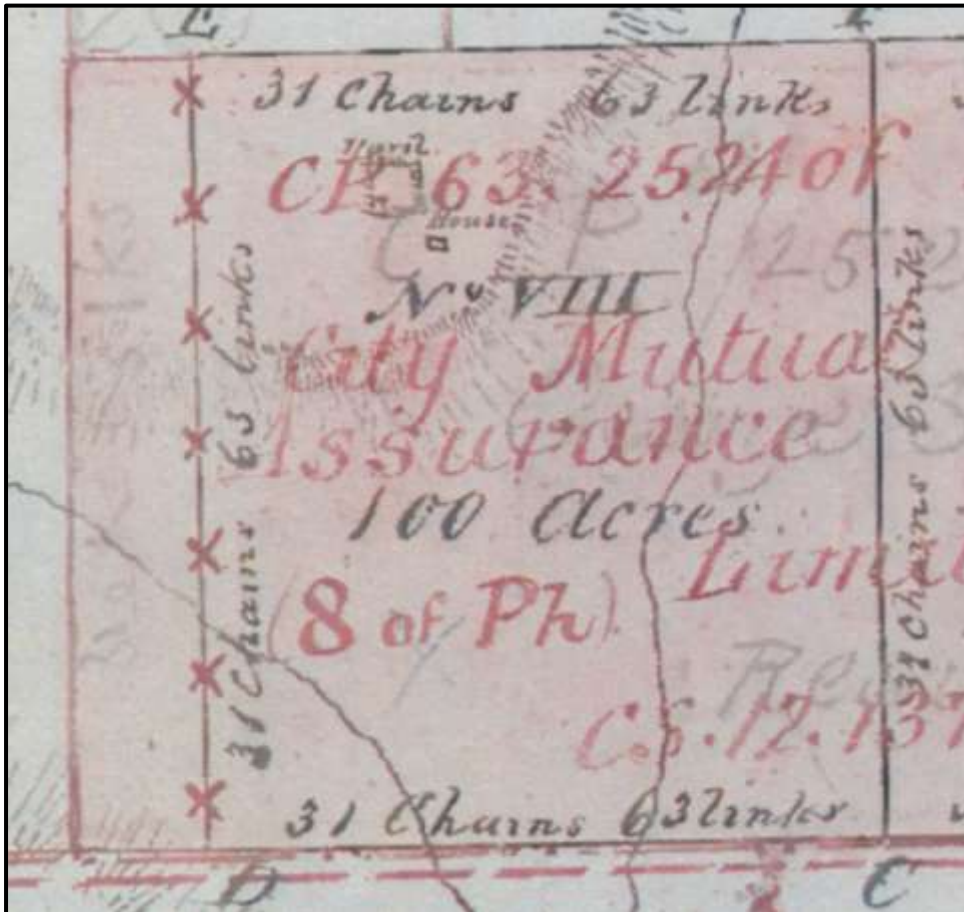 E
31 Chains 63 links
Yard
CP. 63. 2524 of
House
No VIII
City Mutual
Assurance
100 Acres
Limi
(8 of Ph)
C.S.12.
31 Chains 63 links
31 Chains 63 links
31 Chains 63 links
D
C